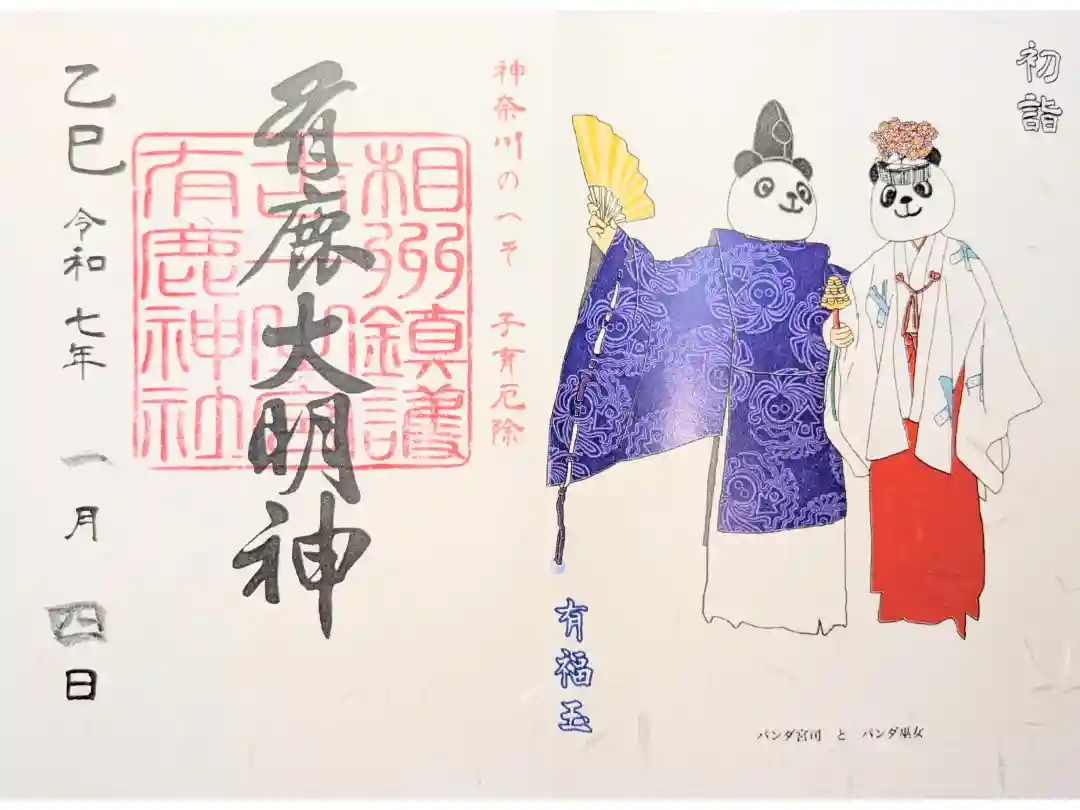 初詣
神奈川のへそ 子育厄除
有鹿大明神
相州鎮護
有鹿神社
乙巳 令和七年 一月 四日
有福玉
パンダ宮司 と パンダ巫女